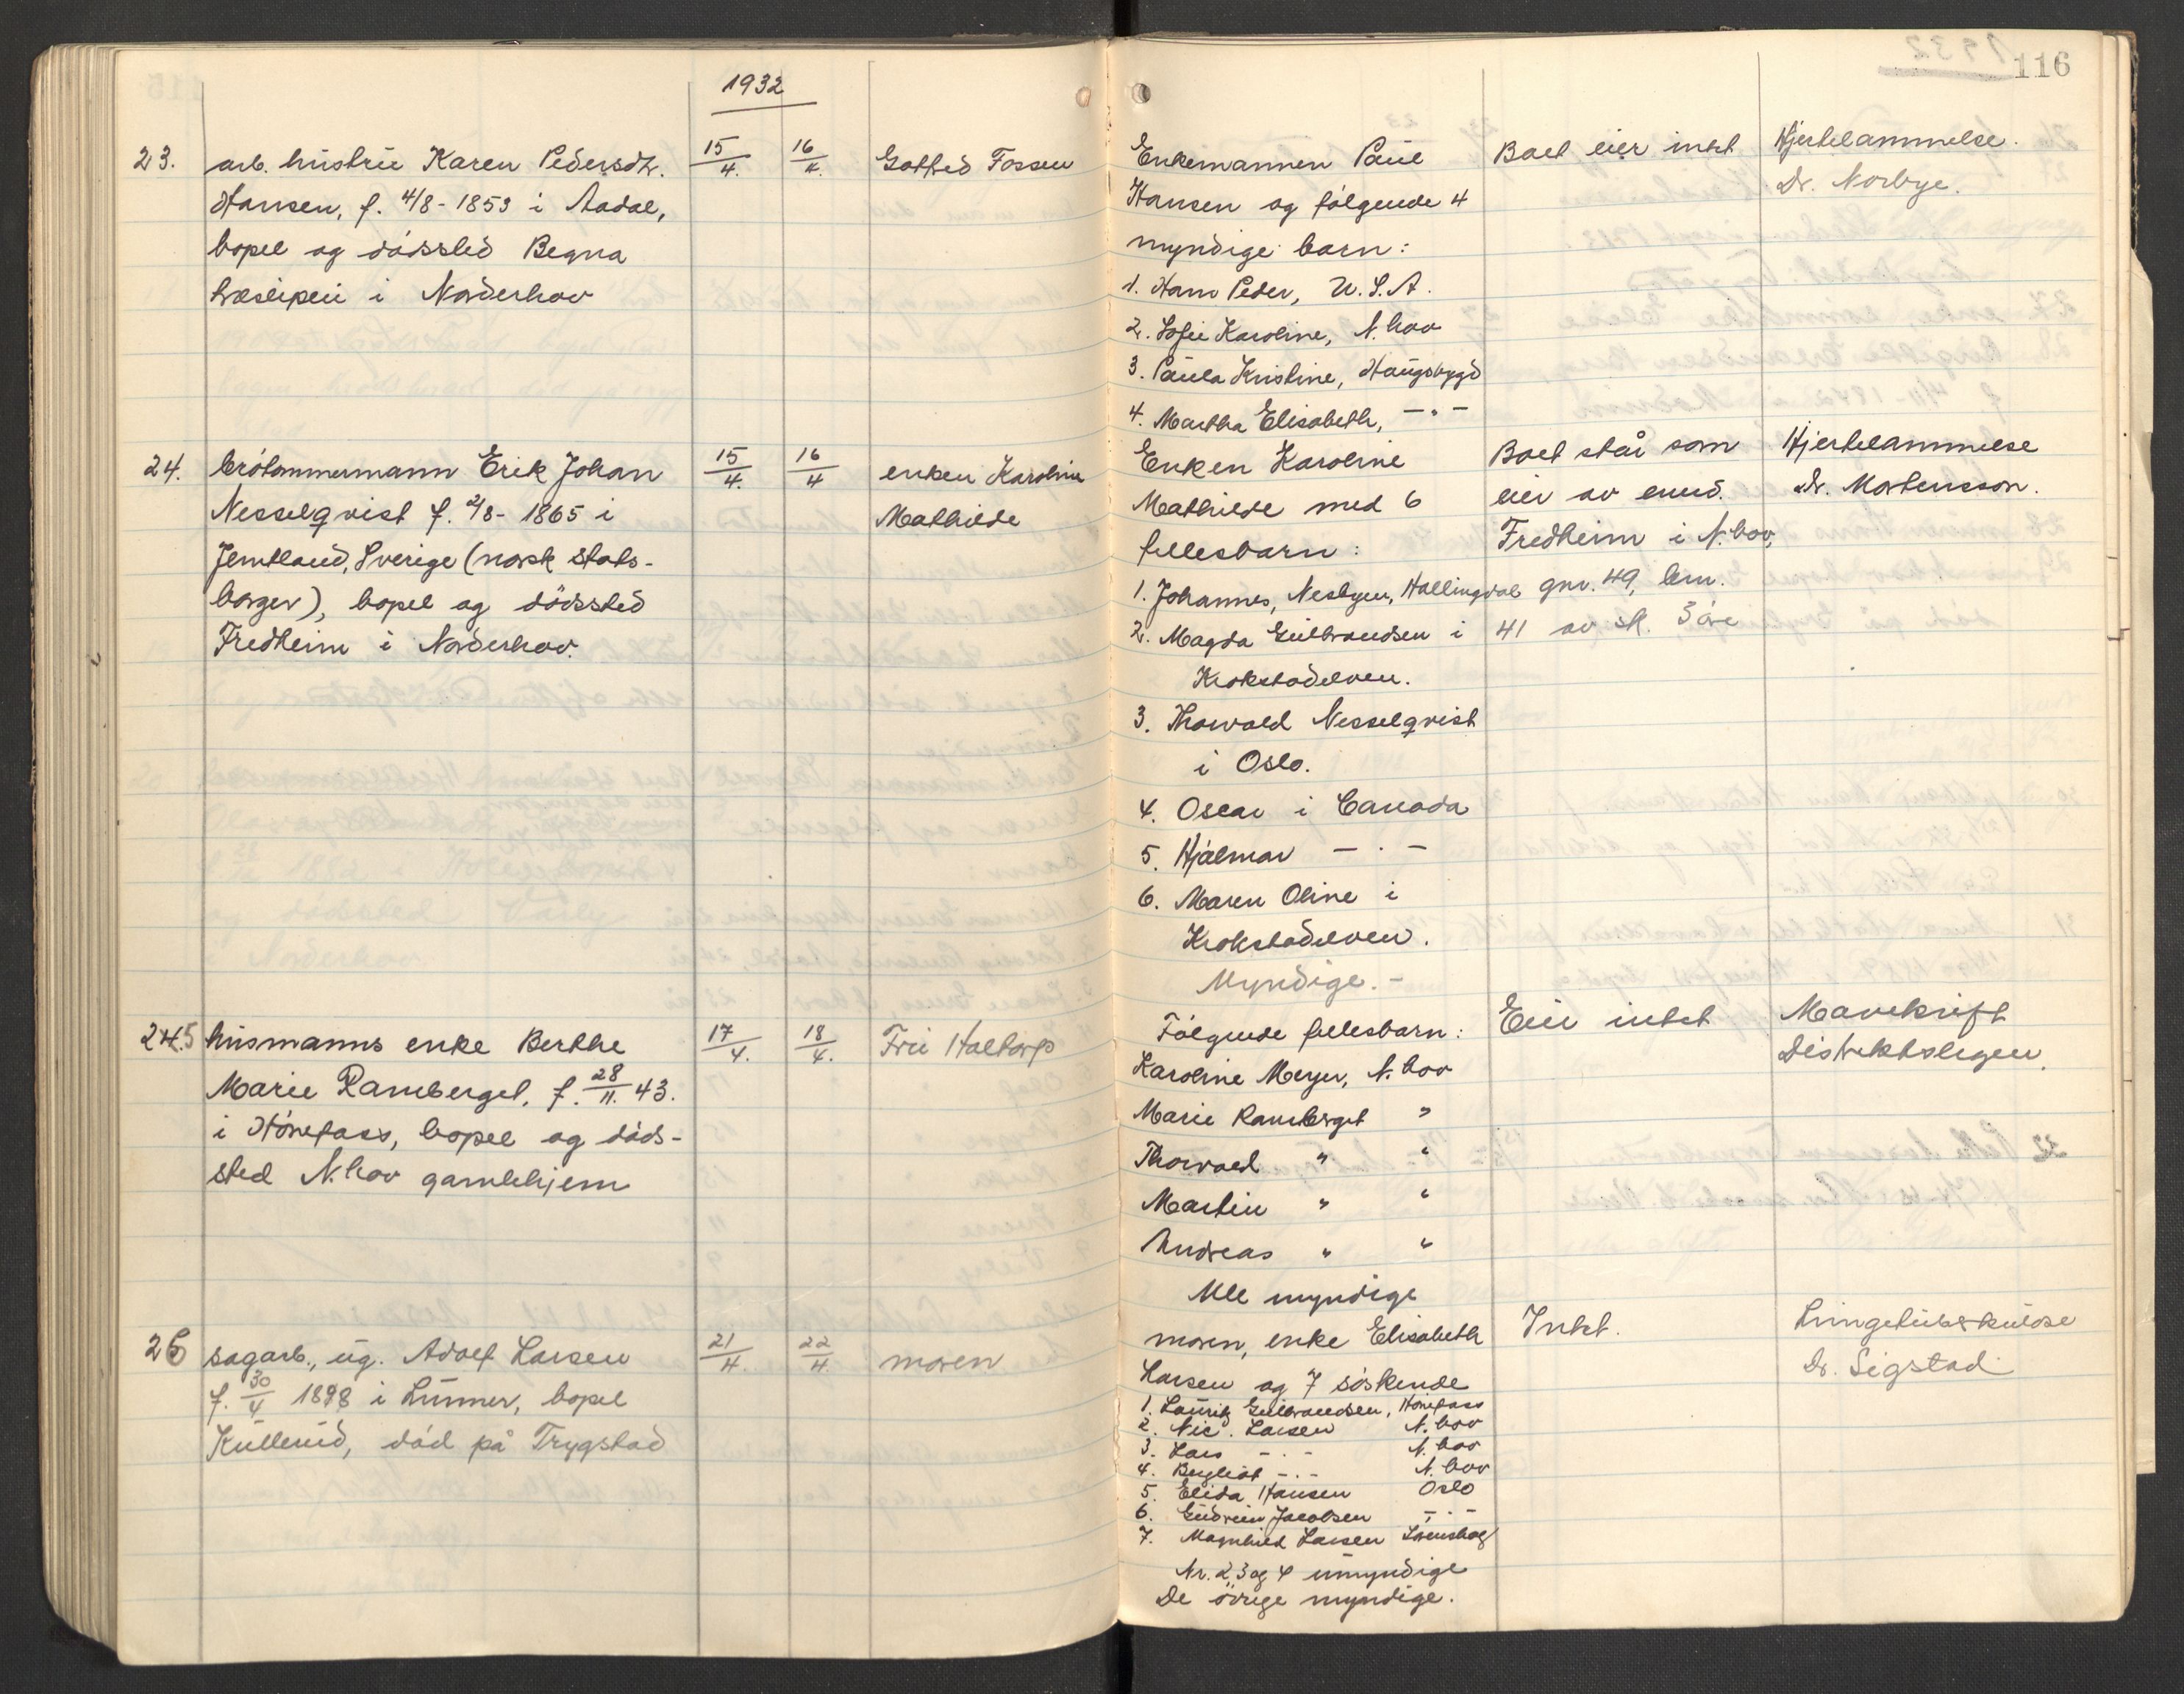 1932
116
23. arb. hustru Karen Pedersdtr.
Hansen, f. 4/8 - 1853 i Aadal,
bopel og dödssted Begna
træsliperi i Norderhov
15/4. 16/4. Gotfred Fossen
Enkemannen Paul
Hansen og fölgende 4
myndige barn:
1. Hans Peder, U.S.A.
2. Sofie Karoline, N.hov
3. Paula Kristine, Haugsbygd
4. Martha Elisabeth, - " -
Boet eier intet
Hjertelammelse.
Dr. Norbye.
24. brötømmermann Erik Johan
Nesselqvist f. 2/8 - 1865 i
Jemtland, Sverige (norsk stats-
borger), bopel og dödssted
Fredheim i Norderhov.
15/4. 16/4 enken Karoline
Mathilde
Enken Karoline
Mathilde med 6
fellesbarn:
1. Johannes, Nesbyen, Hallingdal
2. Magda Gulbrandsen i
Krokstadelven.
3. Thorvald Nesselqvist
i Oslo.
4. Oscar i Canada
5. Hjalmar - " -
6. Maren Oline i
Krokstadelven.
Myndige. -
Boet står som
eier av eiend.
Fredheim i N.hov,
gnr. 49, brn.
41 av sk. 3 öre
Hjertelammelse
Dr. Mortensson.
245 husmanns enke Berthe
Marie Ramberget, f. 28/11. 43.
i Hönefoss, bopel og döds-
sted N.hov gamlehjem
17/4. 18/4. Fru Haltorp
Fölgende fellesbarn:
Karoline Meyer, N.hov
Marie Ramberget "
Thorvald " "
Martin " "
Andreas " "
Alle myndige
Eier intet
Mavekreft
Distriktslegen.
26 sagarb., ug. Adolf Larsen
f. 30/4 1898 i Lunner, bopel
Kullerud, död på Trygstad
21/4. 22/4. moren
moren, enke Elisabeth
Larsen og 7 söskende
1. Lauritz Gulbrandsen, Hönefoss
2. Nic. Larsen N.hov
3. Lars - " - N.hov
4. Bergliot - " - N.hov
5. Elida Hansen Oslo
6. Gudrun Jacobsen - " -
7. Magnhild Larsen Lörenskog
Nr. 2, 3 og 4 umyndige
De övrige myndige.
Intet.
Lungetuberkulose
Dr. Sigstad